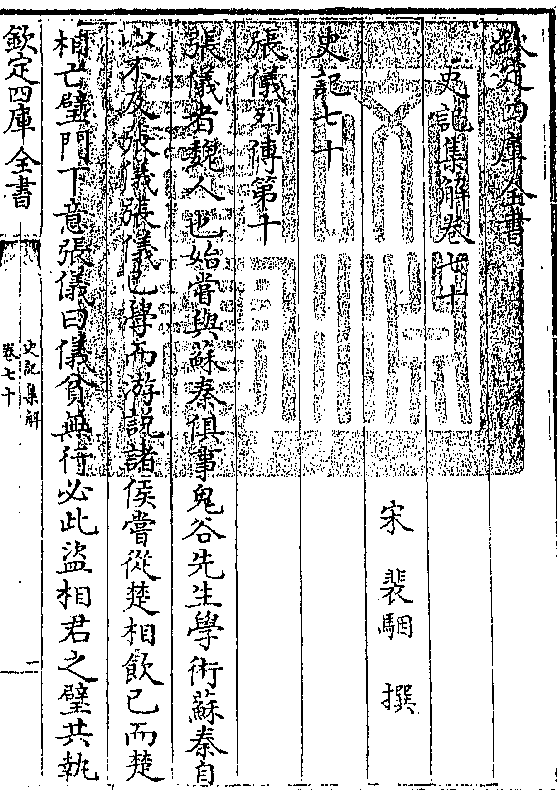 欽定四庫全書
史記集解卷七十
宋 裴駰 撰
史記七十
張儀列傳第十
張儀者魏人也始嘗與蘇秦俱事鬼谷先生學術蘇秦自
以不及張儀張儀已學而游說諸侯嘗從楚相飲已而楚
相亡璧門下意張儀曰儀貧無行必此盜相君之璧共執
欽定四庫全書
史記集解
卷七十
一